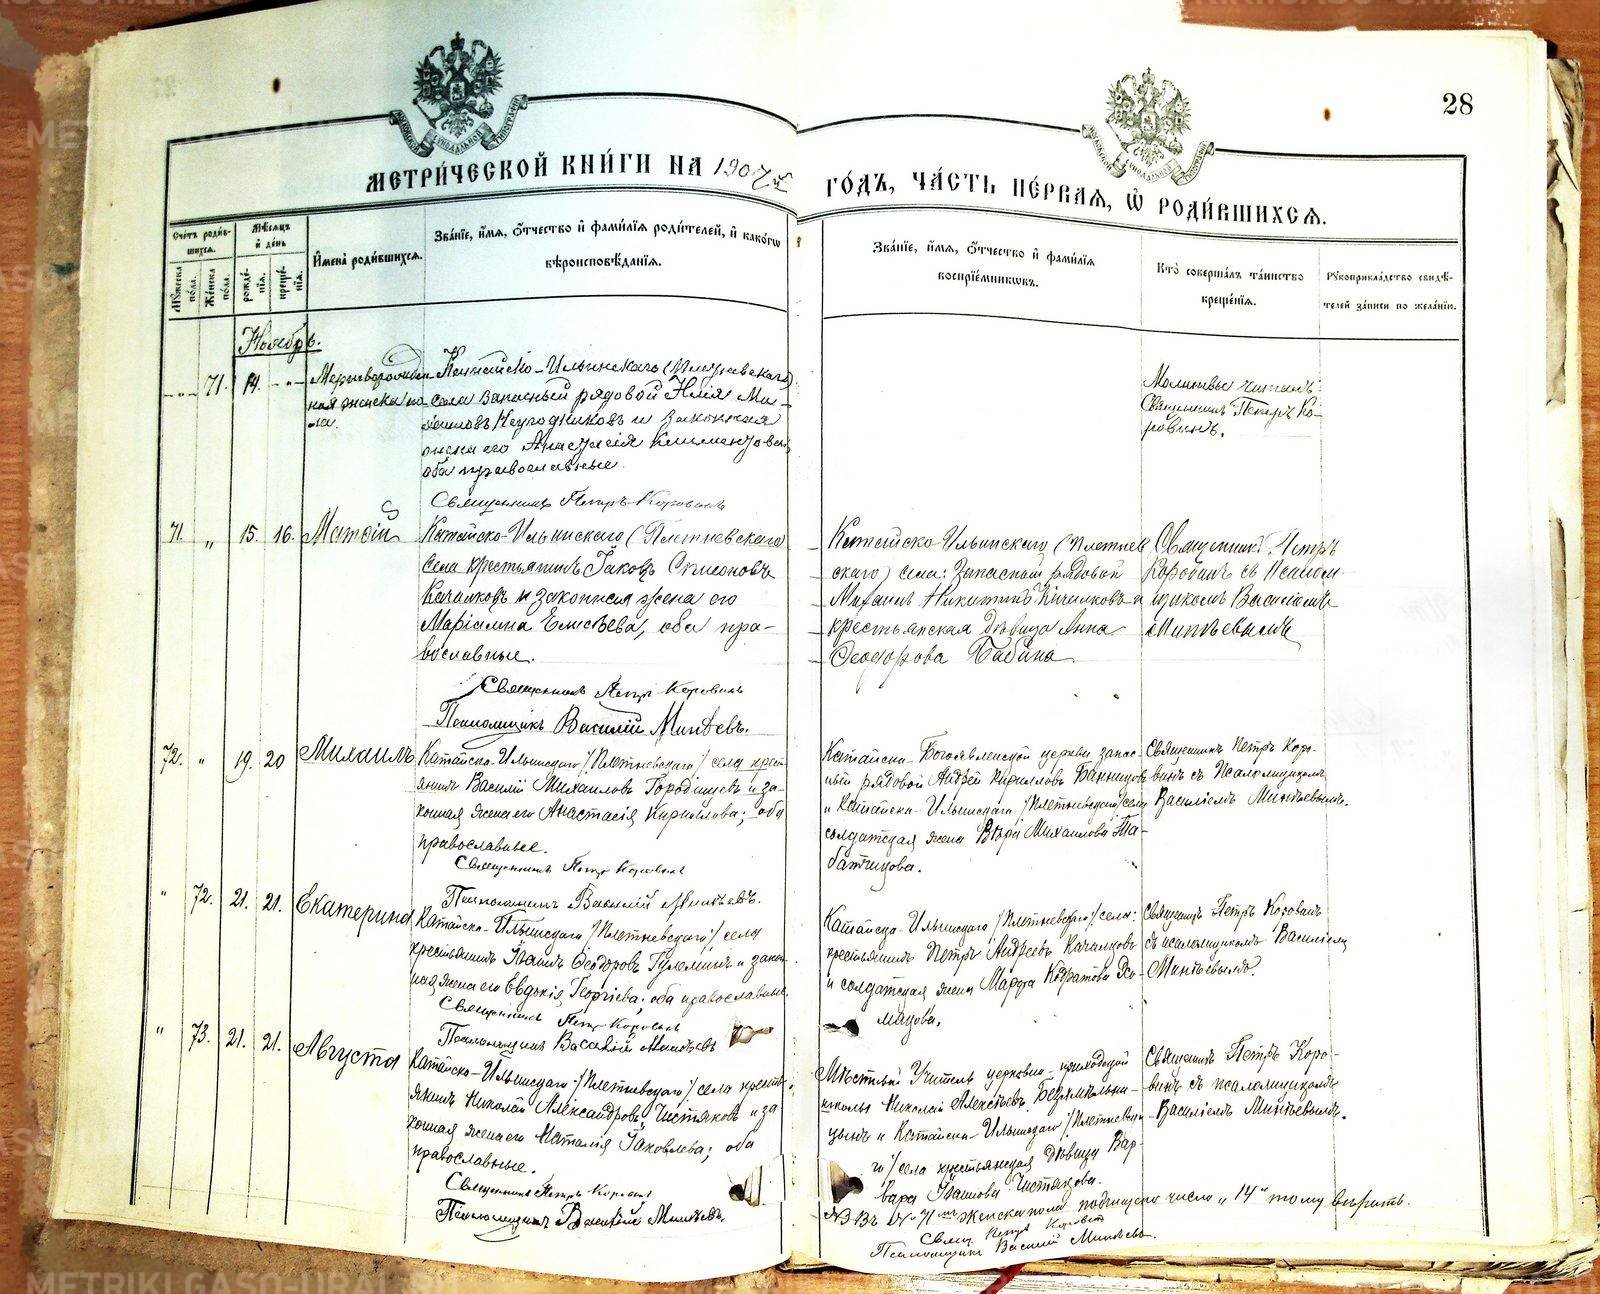 28
МЕТРИ́ЧЕСКОЙ КНИ́ГИ НА 1907й
ГО́ДЪ, ЧА́СТЬ ПЕ́РВАЯ, Ѡ РОДИ́ВШИХСЯ.
Сче́тъ роди́вшихся.
Мꙋ́жеска по́ла.
Же́нска по́ла.
Мѣ́сяцъ и̂ де́нь
рожде́нїя.
креще́нїя.
И̂мена̀ роди́вшихся.
Зва́нїе, и̂мя, ѻ̂тчество и̂ фами́лїя роди́телей, и̂ како́гѡ
вѣроисповѣ́данїя.
Зва́нїе, и̂мя, ѻ̂тчество и̂ фами́лїя
воспрїе́мниковъ.
Кто̀ соверша́лъ та́инство
креще́нїя.
Рꙋкоприкла́дство свидѣ́-
телей за́писи по жела́нїю.
Ноябрь.
71. 14.
Мертворожден-
ная женска по-
ла.
Катайско-Ильинскаго (Плетневскаго)
села запасный рядовой Илія Ми-
хаиловъ Неугодниковъ и законная
жена его Анастасія Климентова
оба православные.
Священникъ Петръ Коровинъ
Молитвы читалъ
Священникъ Петръ Ко-
ровинъ.
71. " 15. 16. Матѳій
Катайско-Ильинскаго (Плетневскаго
села крестьянинъ Іаковъ Симеоновъ
Качалковъ и законная жена его
Маріамна Елисѣева, оба пра-
вославные.
Священникъ Петръ Коровинъ
Псаломщикъ Василій Минѣевъ.
Катайско-Ильинскаго (Плетнев
скаго) села: Запасный рядовой
Михаилъ Никитинъ Качалковъ и
крестьянская дѣвица Анна
Ѳеодорова Бабина
Священникъ Петръ
Коровинъ съ Псалом-
щикомъ Василіемъ
Минѣевымъ
72. " 19. 20 Михаилъ
Катайско-Ильинскаго /Плетневскаго/ села крест-
янинъ Василій Михаиловъ Городищевъ и за-
конная жена его Анастасія Кириллова; оба
православные.
Священникъ Петръ Коровинъ
Псаломщикъ Василій Минѣевъ.
Катайско-Богоявленской церкви запас-
ный рядовой Андрей Кирилловъ
и Катайско-Ильинскаго /Плетневскаго/ села
солдатская жена Вѣра Михаилова Та-
батчикова.
Священникъ Петръ Коро-
винъ съ Псаломщикомъ
Василіемъ Минѣевымъ.
" 72. 21. 21. Екатерина
Катайско-Ильинскаго /Плетневскаго/ села
крестьянинъ Іоаннъ Ѳеодоровъ Гулеминъ и закон-
ная жена его Евдокія Георгіева; оба православные.
Священникъ Петръ Коровинъ
Псаломщикъ Василій Минѣевъ
Катайско-Ильинскаго /Плетневскаго/ села:
крестьянинъ Петръ Андреевъ Качалковъ
и солдатская жена Марѳа Кодратова
Священникъ Петръ Коровинъ
съ псаломщикомъ Василіемъ
Минѣевымъ.
" 73. 21. 21. Августа
Катайско-Ильинскаго /Плетневскаго/ села кресть-
янинъ Николай Александровъ Чистяковъ и за
конная жена его Наталія Іаковлева; оба
православные.
Священникъ Петръ Коровинъ
Псаломщикъ Василій Минѣевъ.
Мѣстный Учитель церковно-приходской
школы Николай Алексѣевъ
и Катайско-Ильинскаго /Плетневска
го/ села крестьянская дѣвица Вар-
вара Іоаннова Чистякова.
Священникъ Петръ Коро-
винъ съ псаломщикомъ
Василіемъ Минѣевымъ.
NB Въ 71 женска пола подчищено число "14" тому вѣрить.
Свящ. Петръ Коровинъ
Псаломщикъ Василій Минѣевъ.
METRIKI.GASO-URAL.RU